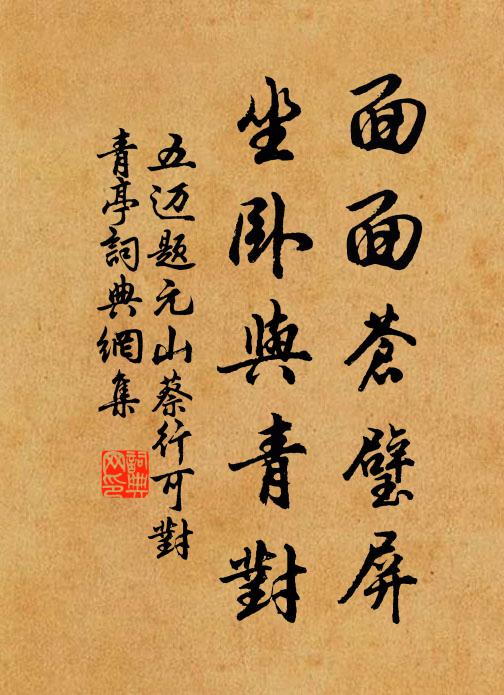 面面蒼璧屏
坐卧與青對
五迈题元山蔡行可對
青亭詞典網集
詞典网印